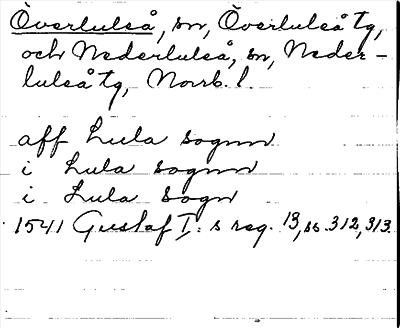 Överluleå, sn, Överluleå tg,
och Nederluleå, sn, Neder-
luleå tg, Norrb. l.
aff Lula sognn
i Lula sognn
i Lula Sogn
1541 Gustaf I:s reg. 13, ss. 312, 313.